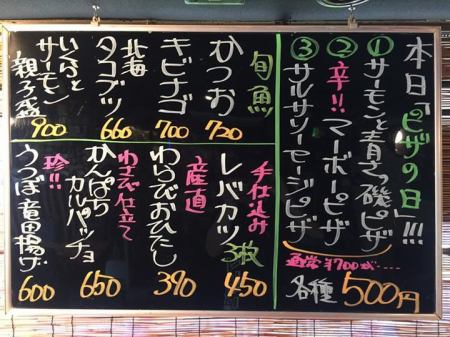 本日「ピザの日」!!!
①サーモンと青さの磯ピザ
②辛!!マーボーピザ
③サルサソーセージピザ
通常¥700が……
各種500円
旬魚
かつお 720
キビナゴ 700
北海タコブツ 660
いくらとサーモン親子盛 900
手仕込み
レバカツ 3枚 450
産直
わらびおひたし 390
わさび仕立て
かんぱちカルパッチョ 650
珍!!
うつぼ竜田揚げ 600